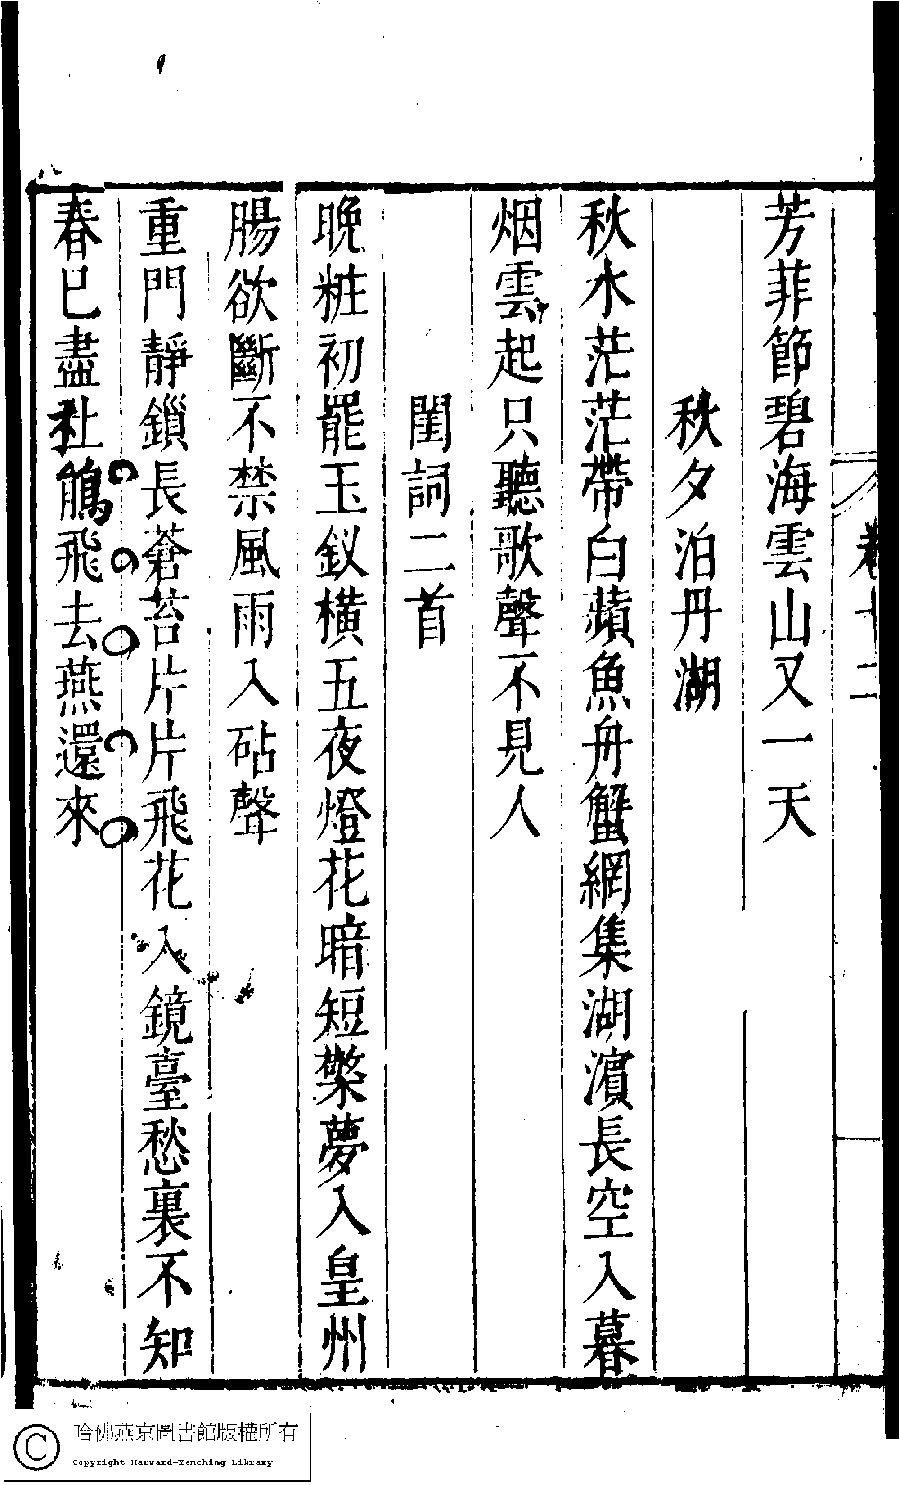 卷十二
芳菲節碧海雲山又一天
秋夕泊丹湖
秋水茫茫帶白蘋魚舟蟹網集湖濵長空入暮
烟雲起只聽歌聲不見人
閨詞二首
晚粧初罷玉釵橫五夜燈花暗短檠夢入皇州
腸欲斷不禁風雨入砧聲
重門靜鎖長蒼苔片片飛花入鏡臺愁裏不知
春已盡杜鵑飛去燕還來
哈佛燕京圖書館版權所有
Copyright Harvard-Yenching Library